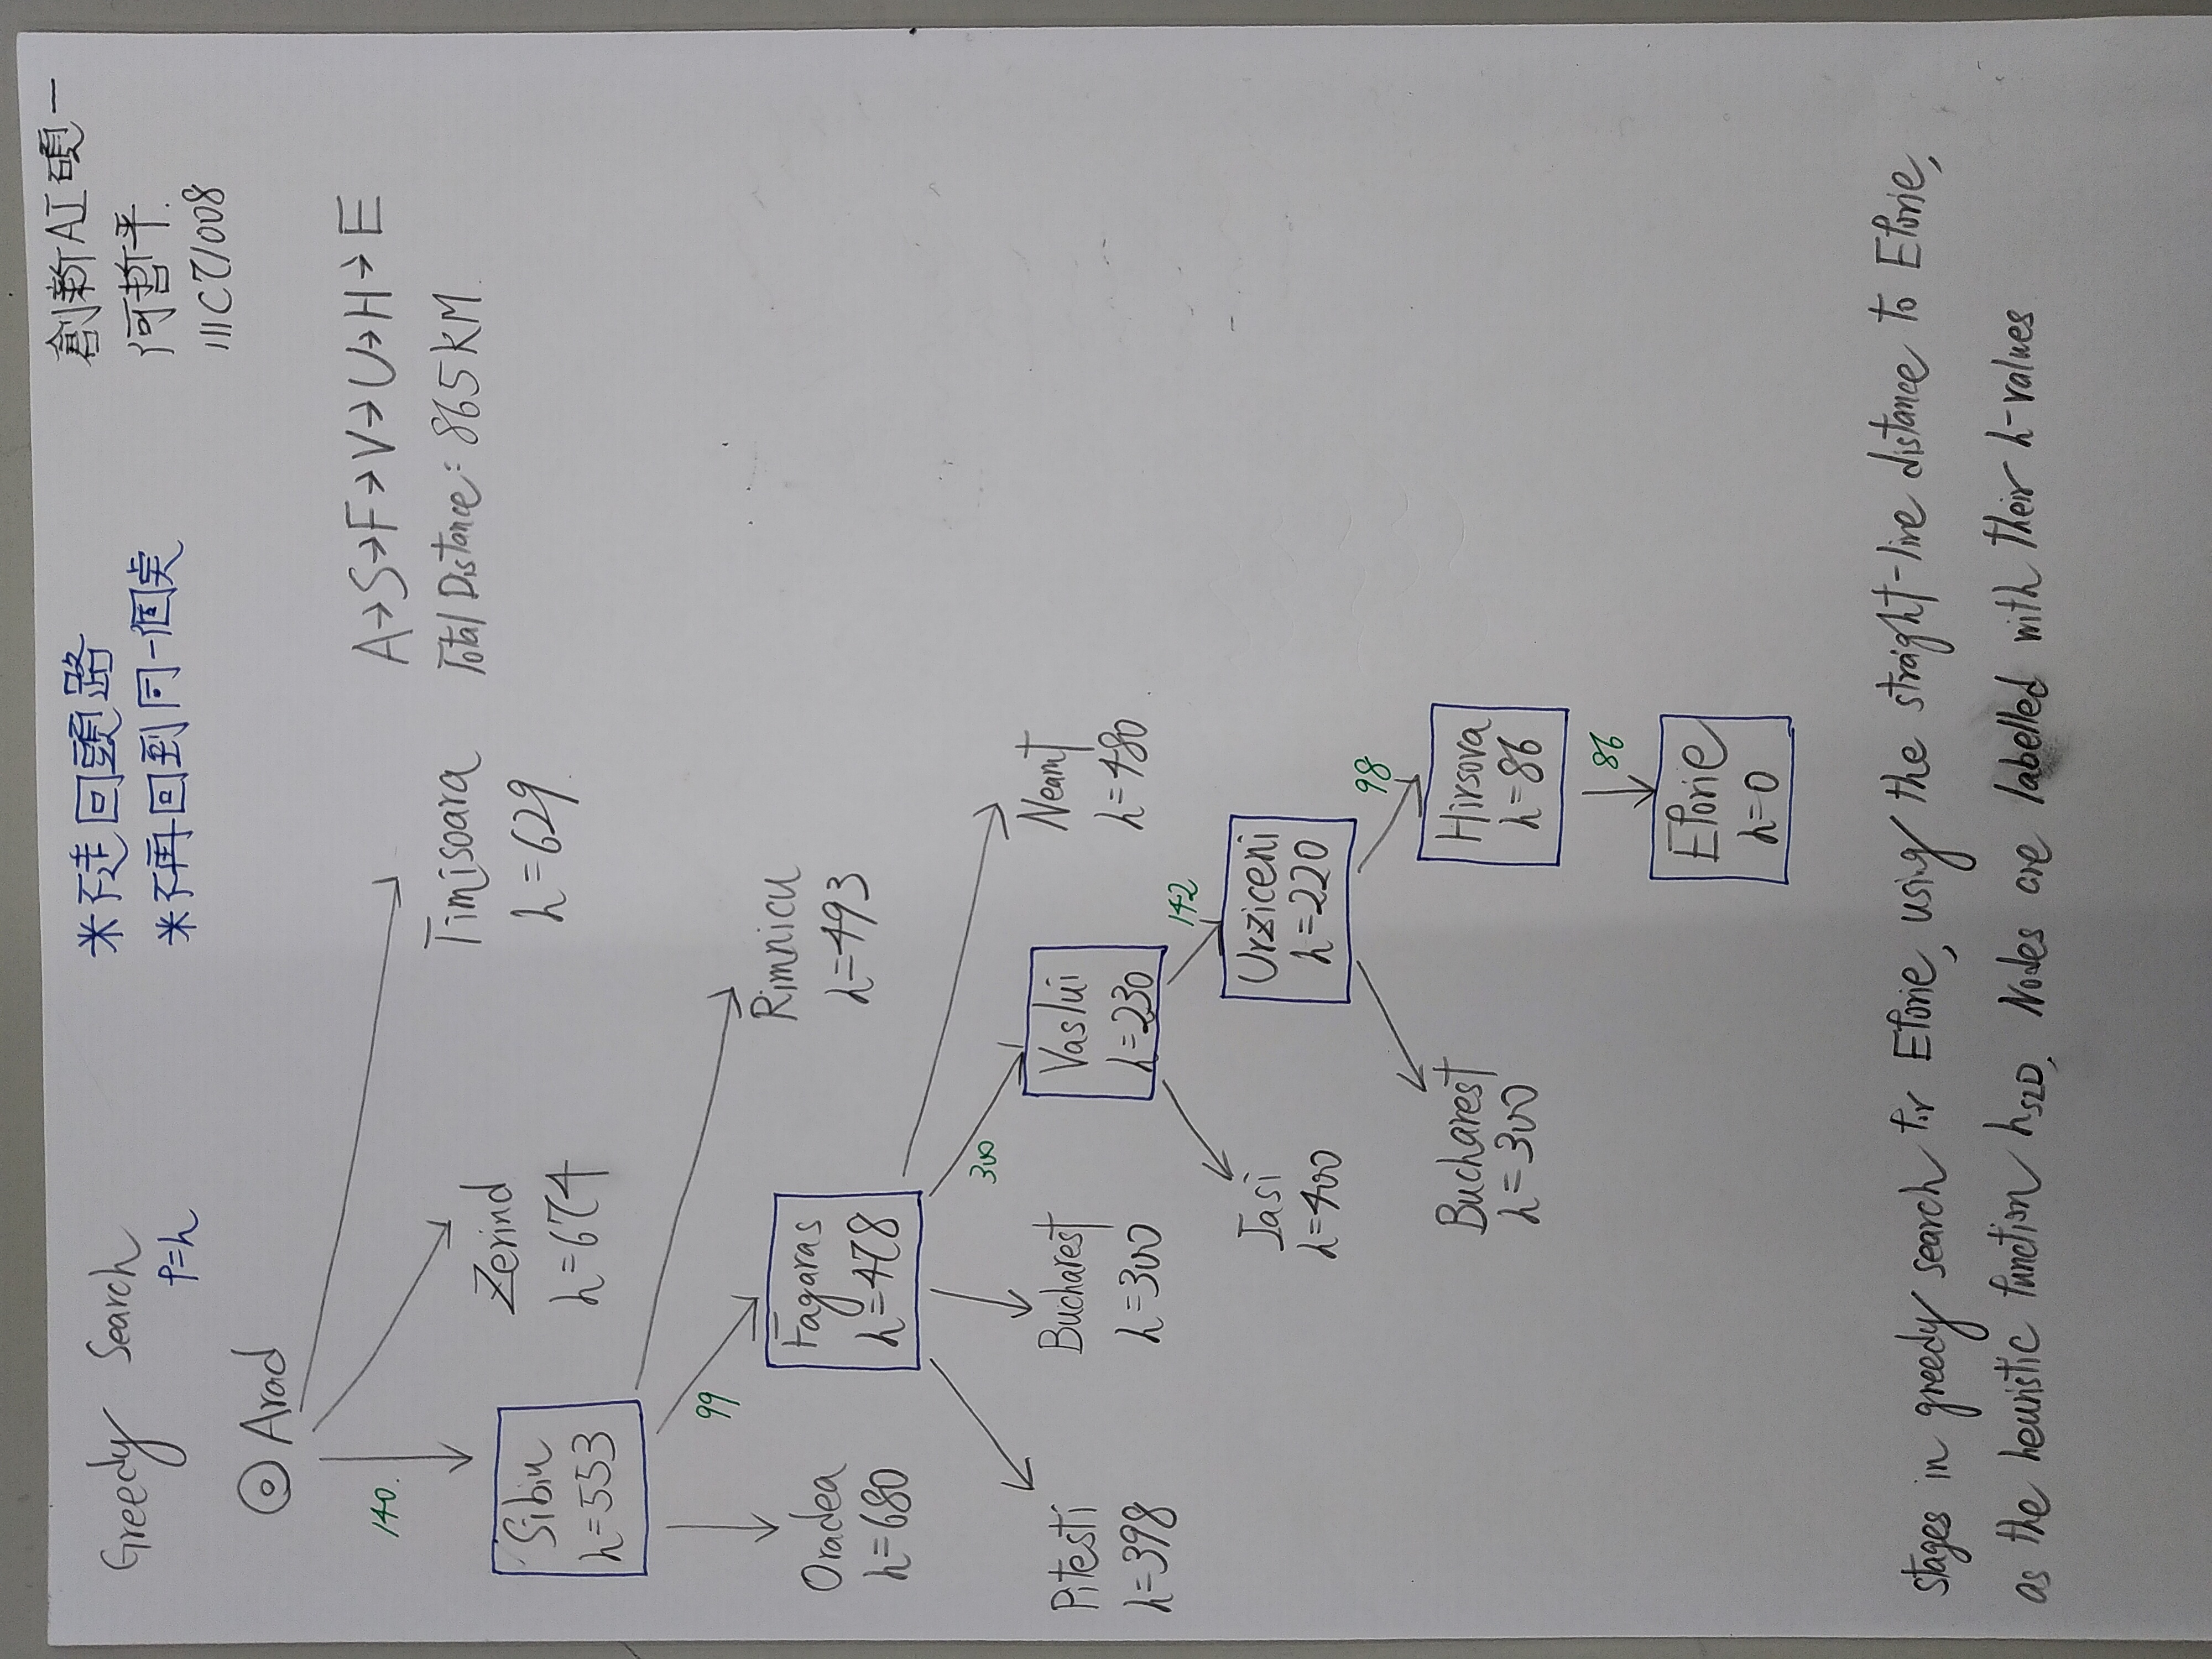 Greedy Search
f=h
*不走回頭路
*不再回到同一個點
創新AI碩一
何哲平.
111C71008
Arad
140.
A→S→F→V→U→H→E
Total Distance: 865KM.
Sibiu
h=553
Zerind
h=674
Timisoara
h=629
99
Oradea
h=680
Fagaras
h=478
Rimnicu
h=493
300
Pitesti
h=398
Bucharest
h=300
Vaslui
h=230
Neamt
h=480
142
Iasi
h=400
Urziceni
h=220
98
Bucharest
h=300
Hirsova
h=86
86
Eforie
h=0
stages in greedy search for Eforie, using the straight-line distance to Eforie,
as the heuristic function hSLD. Nodes are labelled with their h-values